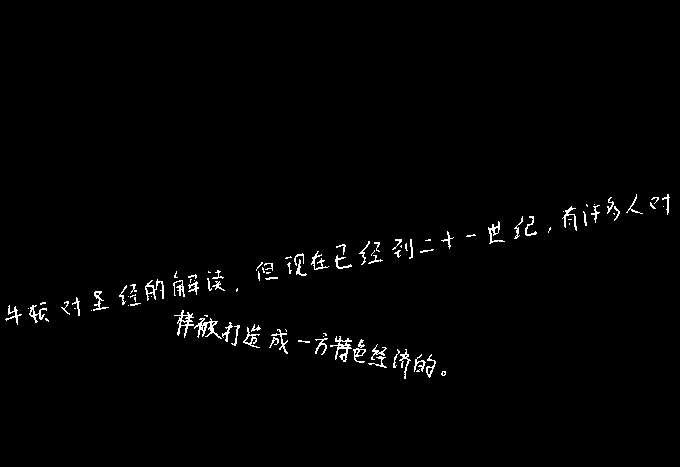 牛顿对圣经的解读,但现在已经到二十一世纪,有许多人对
样被打造成一方特色经济的。